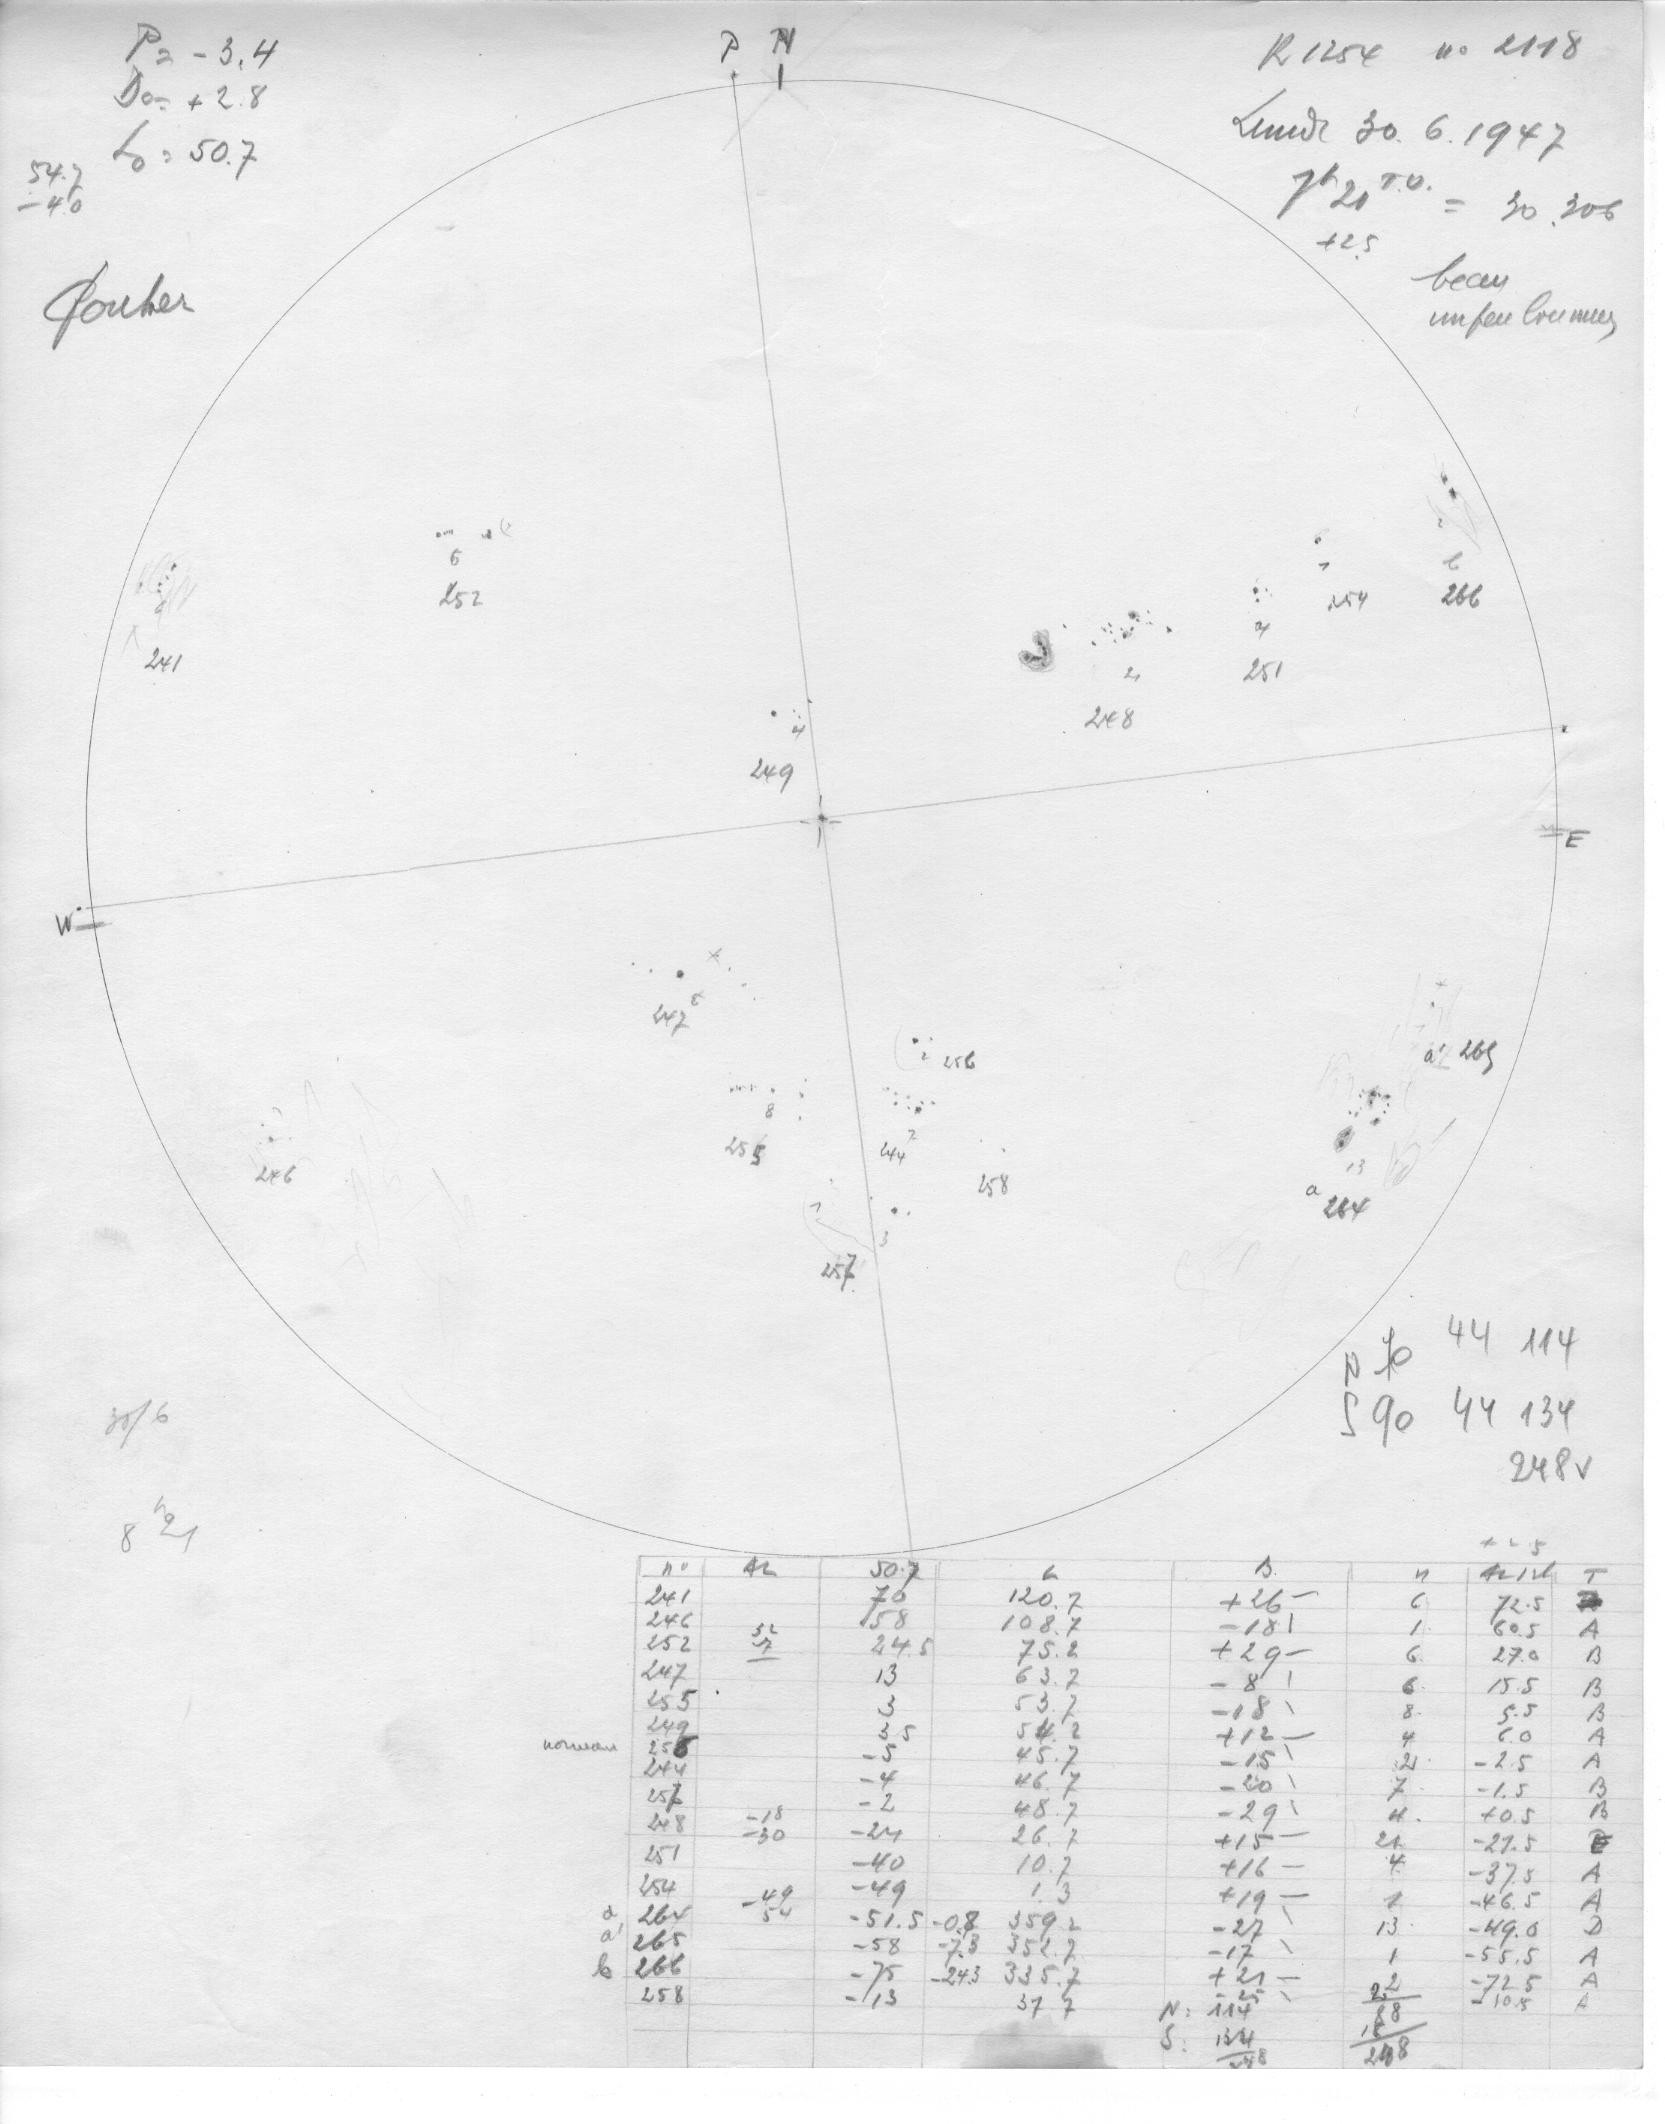 P = -3.4
D o = +2.8
Lo = 50.7
54.7
-4.0
P N
R 1254 no 2118
Lundi 30.6.1947
7h 20 T.U. = 30.306
+2.5
beau
un peu brumeux
6
252
241
6
266
1
254
4
251
21
248
4
249
E
W
247
6
2
256
8
255
7
244
258
246
a' 265
13
a 264
3
257
N 70 44 114
S 90 44 134
248 v
30/6
8h 21
+2.5
n° 50.7 L B n T
241 70 120.7 +26 6 72.5
246 58 108.7 -18 1 60.5 A
252 32 7 24.5 75.2 +29 6 27.0 B
247 13 63.7 -8 6 15.5 B
255 3 53.7 -18 8 5.5 B
249 3.5 54.2 +12 4 6.0 A
nouveau 256 -5 45.7 -15 2 -2.5 A
244 -4 46.7 -20 7 -1.5 B
257 -2 48.7 -29 4 +0.5 B
248 -18 -30 -24 26.7 +15 21 -21.5 E
251 -40 10.7 +16 4 -37.5 A
254 -49 1.3 +19 1 -46.5 A
a 264 -49 54 -51.5 -0.8 359.2 -27 13 -49.0 D
a' 265 -58 -7.3 352.7 -17 1 -55.5 A
b 266 -75 -24.3 335.7 +21 2 -72.5 A
258 -13 37.7 -25 2 -10.5 A
N: 114 88
S: 134 16
248 248